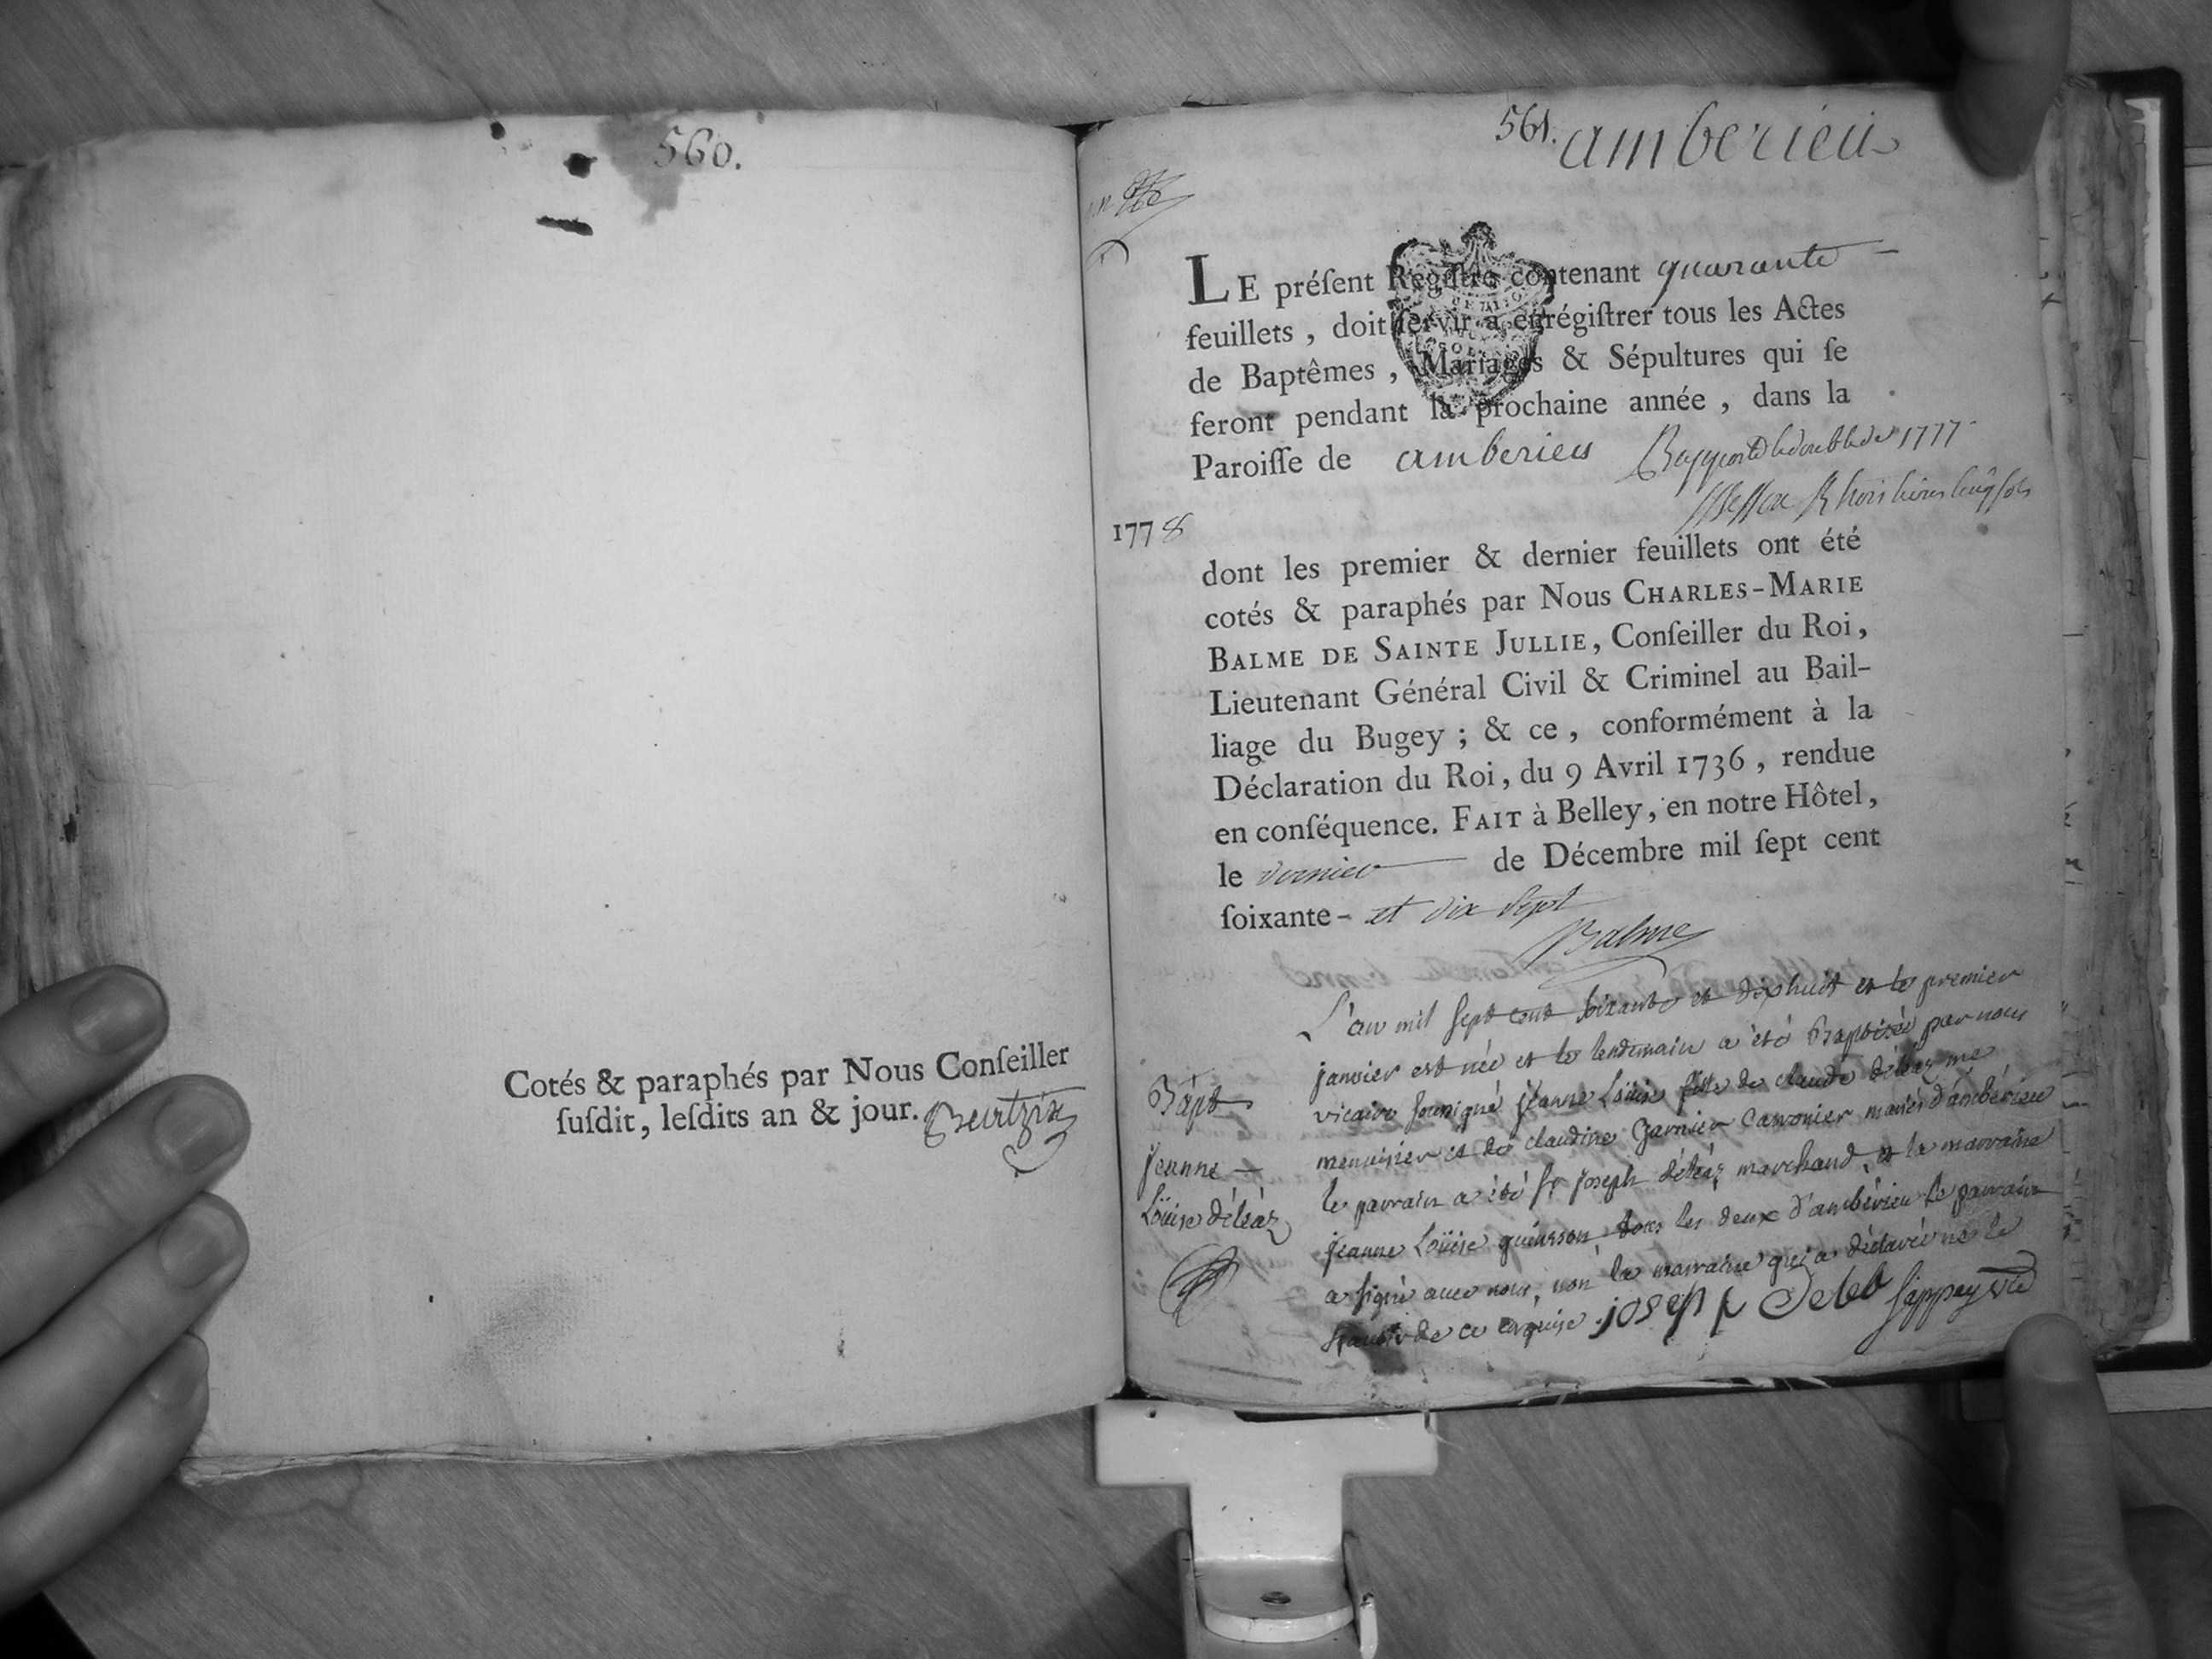 560.
Cotés & paraphés par Nous Conſeiller
ſuſdit, leſdits an & jour.
561. amberieu
LE préſent Regiſtre contenant quarante
feuillets, doit ſervir à enrégiſtrer tous les Actes
de Baptêmes, Mariages & Sépultures qui ſe
feront pendant la prochaine année, dans la
Paroiſſe de amberieu
1777
1778
dont les premier & dernier feuillets ont été
cotés & paraphés par Nous CHARLES-MARIE
BALME DE SAINTE JULLIE, Conſeiller du Roi,
Lieutenant Général Civil & Criminel au Bail-
liage du Bugey; & ce, conformément à la
Déclaration du Roi, du 9 Avril 1736, rendue
en conſéquence. FAIT à Belley, en notre Hôtel,
le dernier de Décembre mil ſept cent
ſoixante- et dix sept
Balme
L'an mil sept cent soixante et dixhuit et le premier
janvier est née et le lendemain a été Baptisée par nous
vicaire sousigné jeanne Loüise fille de claude déléaz me
menuisier et de claudine Garnier Canonier mariés d'ambérieu
le parrain a été sr joseph déléaz marchand, et la marraine
jeanne Loüise tous les deux d'ambérieu le parrain
a signé avec nous, non la marraine qui a déclaré ne le
de ce enquise. joseph
Bapt
jeanne
Loüise déléaz